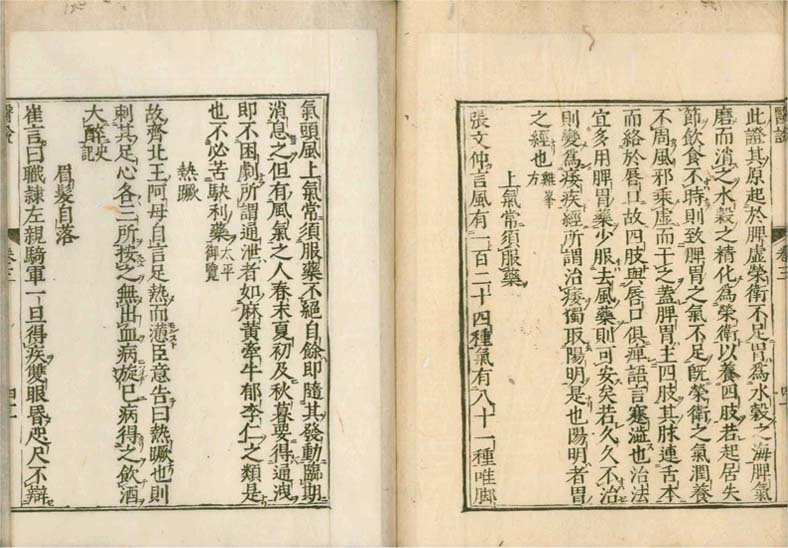 此證其原起於脾虛榮衛不足胃為水穀之海脾氣
磨而消之水穀之精化為榮衛以養四肢若起居失
節飲食不時則致脾胃之氣不足既榮衛之氣潤養
不周風邪乘虛而干之蓋脾胃主四肢其脉連舌本
而絡於唇口故四肢與唇口俱痺語言蹇澁也治法
宜多用脾胃藥少服去風藥則可安矣若久久不治
則變為痿疾經所謂治痿獨取陽明是也陽明者胃
之經也 雞峯方
上氣常須服藥
張文仲言風有一百二十四種氣有八十一種唯脚
氣頭風上氣常須服藥不絕自餘即隨其發動臨期
消息之但有風氣之人春末夏初及秋暮要得通洩
即不困劇所謂通泄者如麻黄牽牛郁李仁之類是
也不必苦駃利藥 太平御覽
熱蹶
故齊北王阿母自言足熱而懣臣意告曰熱蹶也則
刺其足心各三所按之無出血病旋已病得之飲酒
大醉 史記
眉髮自落
崔言曰職隸左親騎軍一旦得疾雙眼昏咫尺不辯